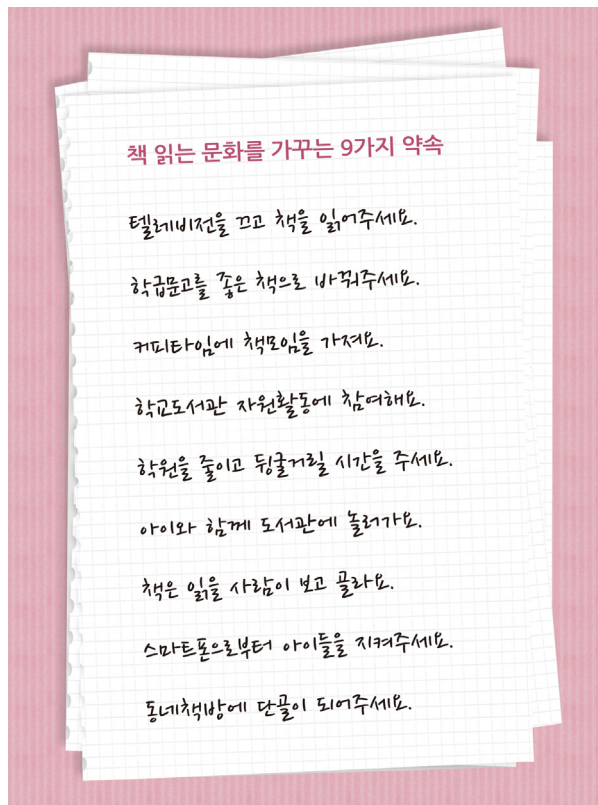 책 읽는 문화를 가꾸는 9가지 약속
텔레비전을 끄고 책을 읽어주세요.
학급문고를 좋은 책으로 바꿔주세요.
커피타임에 책모임을 가져요.
학교도서관 자원활동에 참여해요.
학원을 줄이고 뒹굴거릴 시간을 주세요.
아이와 함께 도서관에 놀러가요.
책은 읽을 사람이 보고 골라요.
스마트폰으로부터 아이들을 지켜주세요.
동네책방에 단골이 되어주세요.